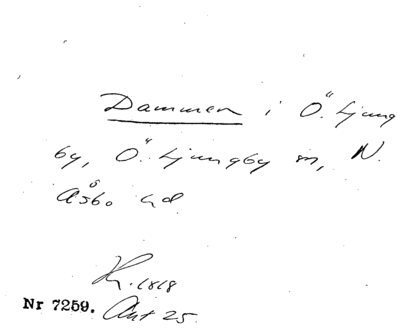 Dammen i Ö. Ljung
by, Ö. Ljungby sn, N.
Åsbo hd.
1818
Nr 7259. Ant 25.